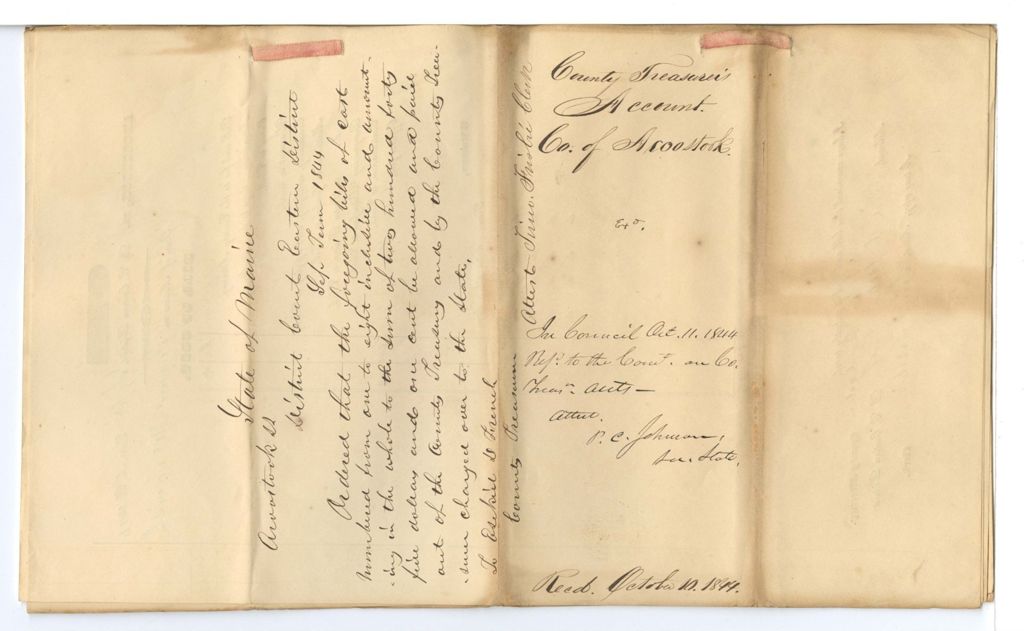 State of Maine
Aroostook ss
District Court Eastern District
Sep. Term 1844
Ordered that the foregoing bills of cost
numbered from one to eight inclusive and amount-
-ing in the whole to the sum of two hundred forty
five dollars and one cent be allowed and paid
out of the County Treasury and by the County Trea-
-surer charged over to the State,
To Ezekiel
County Treasurer
Attest Clerk
County Treasurer's
Account.
Co. of Aroostook.
In Council Oct. 11. 1844
Refd. to the Comt. on Co.
Treasr. accts –
Attest.
P. C. Johnson,
Sec. State.
Recd. October 10. 1844.